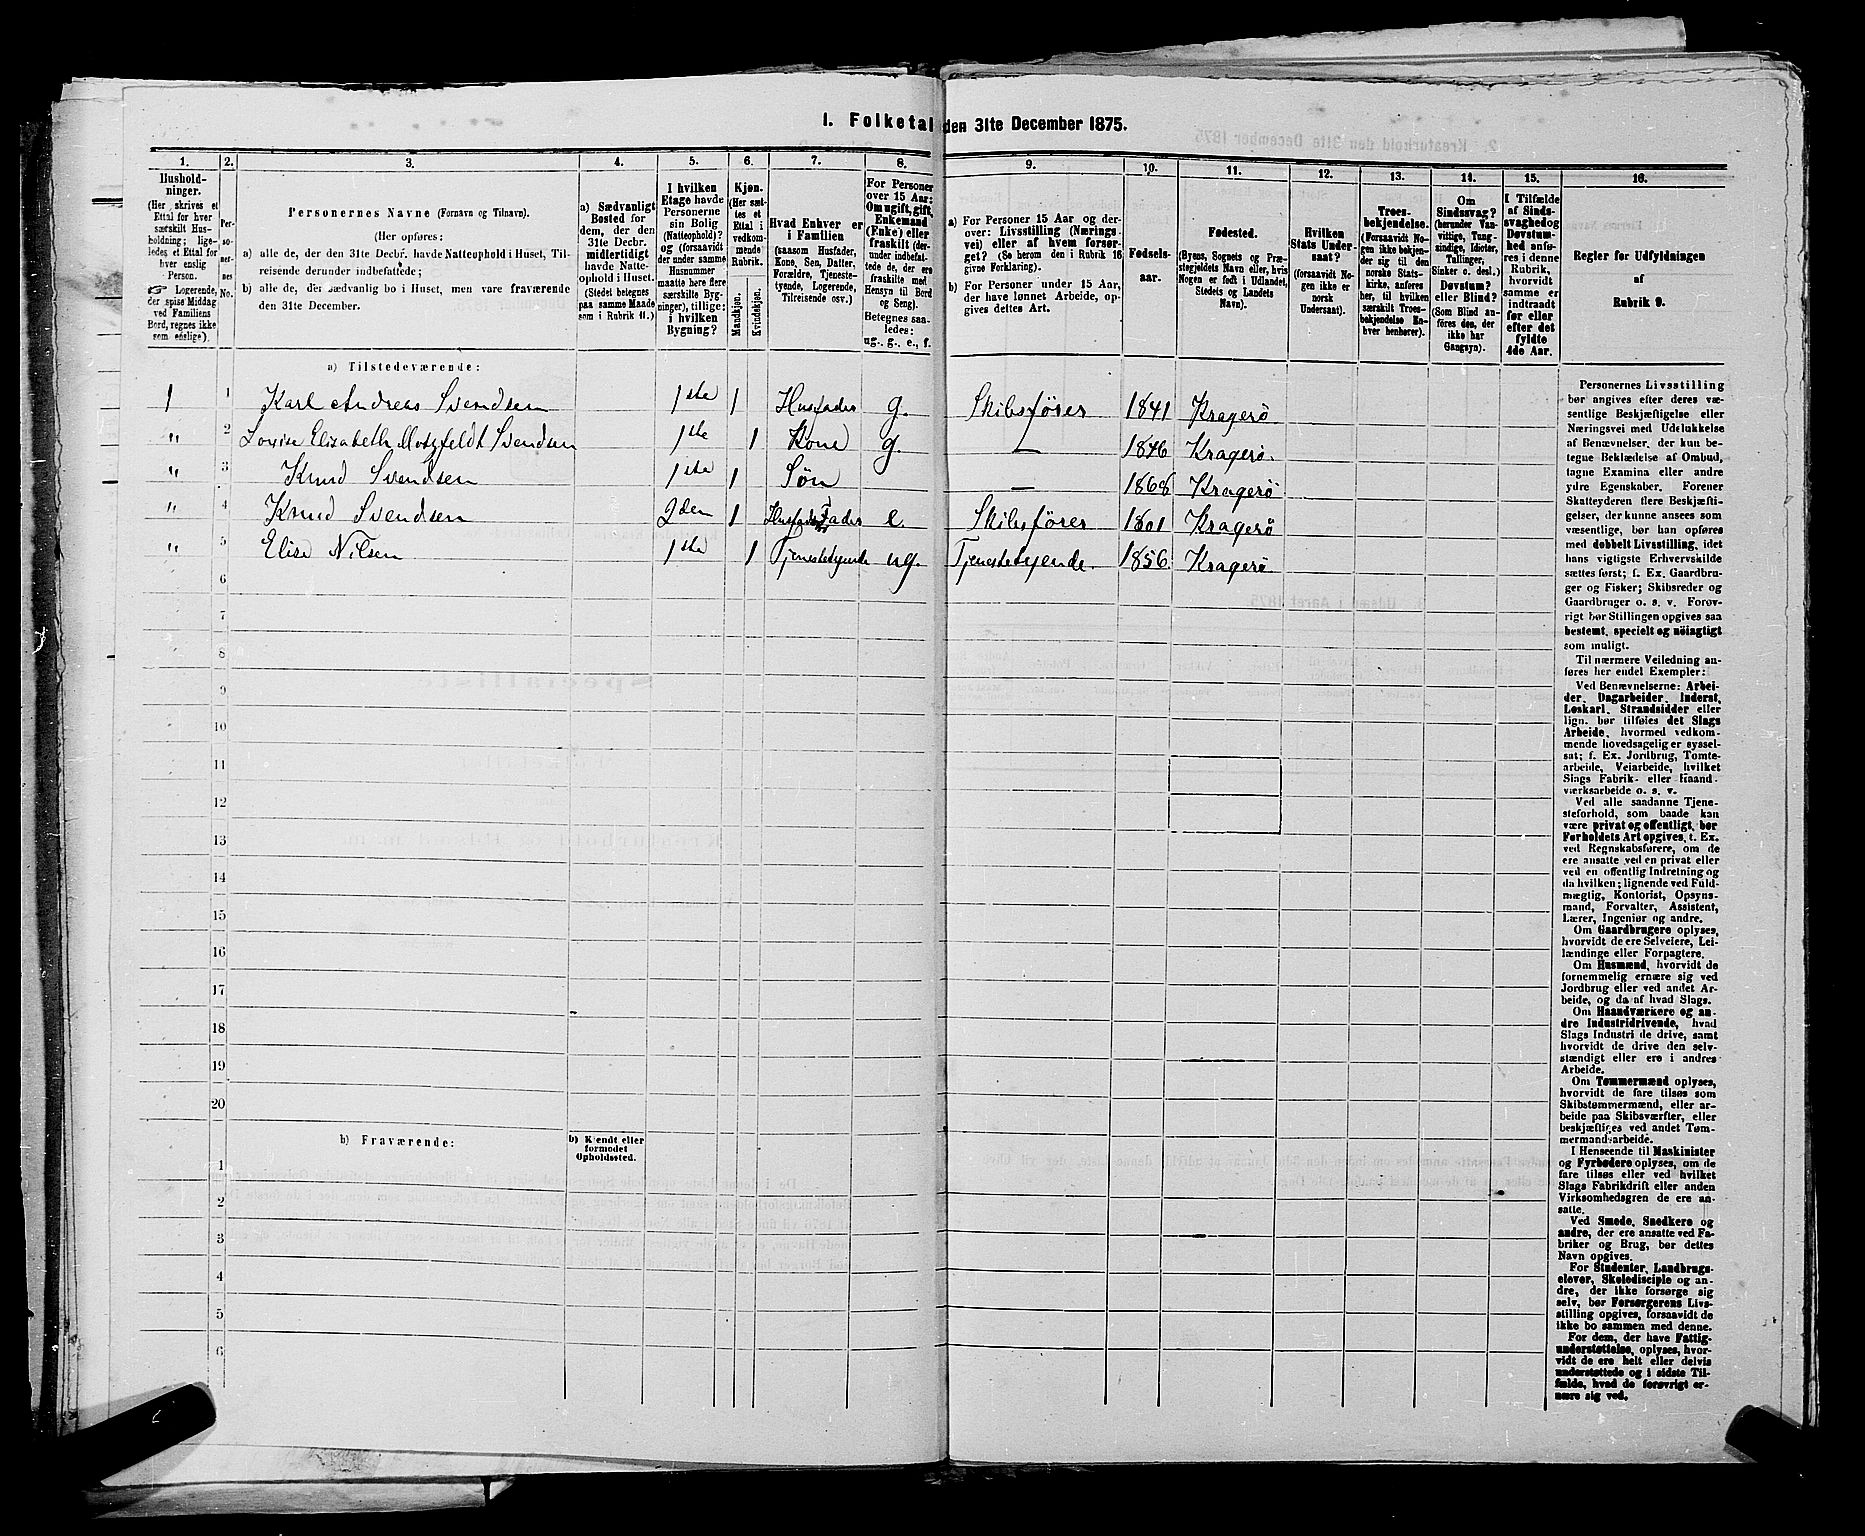 I. Folketal den 31te December 1875.
1. 2. 3. 4. 5. 6. 7. 8. 9. 10. 11. 12. 13. 14. 15. 16.
Hushold-
ninger.
(Her skrives et
Ettal for hver
særskilt Hus-
holdning; lige-
ledes et Ettal for
hver enslig
Person.
☞ Logerende,
der spise Middag
ved Familiens
Bord, regnes ikke
som enslige).
Per-
so-
ner-
nes
No.
Personernes Navne (Fornavn og Tilnavn).
(Her opføres:
a) alle de, der den 31te Decbr. havde Natteophold i Huset, Til-
reisende derunder indbefattede;
b) alle de, der sædvanlig bo i Huset, men vare fraværende
den 31te December.
a) Sædvanligt
Bosted for
dem, der den
31te Decbr.
midlertidigt
havde Natte-
ophold i Huset.
(Stedet betegnes
paa samme Maade
som i Rubrik 11.)
I hvilken
Etage havde
Personerne
sin Bolig
(Natteophold)?
og (forsaavidt
der under samme
Husnummer
maatte høre flere
særskilte Byg-
ninger), tillige:
i hvilken
Bygning?
Kjøn.
(Her sæt-
tes et
Ettal i
vedkom-
mende
Rubrik.
Mandkjøn.
Kvindekjøn.
Hvad Enhver er
i Familien
(saasom Husfader,
Kone, Søn, Datter,
Forældre, Tjeneste-
tyende, Logerende,
Tilreisende osv.)
For Personer
over 15 Aar:
Om ugift, gift,
Enkemand
(Enke) eller
fraskilt (der-
under indbefat-
tede de, der ere
fraskilte med
Hensyn til Bord
og Seng).
Betegnes saa-
ledes:
ug., g., e., f.
a) For Personer 15 Aar og der-
over: Livsstilling (Nærings-
vei) eller af hvem forsør-
get? (Se herom den i Rubrik 16
givne Forklaring).
b) For Personer under 15 Aar,
der have lønnet Arbeide, op-
gives dettes Art.
Fødsels-
aar.
Fødested.
(Byens, Sognets og Præ-
stegjeldets Navn eller, hvis
Nogen er født i Udlandet,
Stedets og Landets
Navn).
Hvilken
Stats Under-
saat?
(forsaavidt No-
gen ikke er
norsk
Undersaat).
Troes-
bekjendelse.
(Forsaavidt No-
gen ikke bekjen-
der sig til den
norske Stats-
kirke, anføres
her, til hvilken
særskilt Troes-
bekjendelse En-
hver henhører).
Om
Sindssvag?
(herunder Van-
vittige, Tung-
sindige, Idioter,
Tullinger,
Sinker o. desl.)
Døvstum?
eller Blind?
(Som Blind an-
føres den, der
ikke har
Gangsyn).
I Tilfælde
af Sinds-
svaghed og
Døvstum-
hed anfø-
res i denne
Rubrik,
hvorvidt
samme er
indtraadt
før eller
efter det
fyldte
4de Aar.
Regler for Udfyldningen
af
Rubrik 9.
a) Tilstedeværende:
1 1 Karl Andreas Svendsen 1ste 1 Husfader g. Skibsfører 1841 Kragerø
" 2 Lovise Elizabeth Motzfeldt Svendsen 1ste 1 Kone g. — 1846 Kragerø.
" 3 Knud Svendsen 1ste 1 Søn — 1868 Kragerø
" 4 Knud Svendsen 2den 1 Husfaders Fader e Skibsfører 1801 Kragerø
" 5 Elise Nilsen 1ste 1 Tjenestetyende ug. Tjenestetyende. 1856 Kragerø
6
7
8
9
10
11
12
13
14
15
16
17
18
19
20
b) Fraværende:
b) Kjendt eller
formodet
Opholdssted.
1
2
3
4
5
6
Personernes Livsstilling
bør angives efter deres væ-
sentlige Beskjæftigelse eller
Næringsvei med Udelukkelse
af Benævnelser, der kun be-
tegne Beklædelse af Ombud,
tagne Examina eller andre
ydre Egenskaber. Forener
Skatteyderen flere Beskjæfti-
gelser, der kunne ansees som
væsentlige, bør han opføres
med dobbelt Livsstilling, idet
hans vigtigste Erhvervskilde
sættes først; f. Ex. Gaardbru-
ger og Fisker; Skibsreder og
Gaardbruger o. s. v. Forøv-
rigt bør Stillingen opgives saa
bestemt, specielt og nöiagtigt
som muligt.
Til nærmere Veiledning an-
føres her endel Exempler:
Ved Benævnelserne: Arbei-
der, Dagarbeider, Inderst,
Løskarl, Strandsidder eller
lign. bør tilføies det Slags
Arbeide, hvormed vedkom-
mende hovedsagelig er syssel-
sat; f. Ex. Jordbrug, Tømte-
arbeide, Veiarbeide, hvilket
Slags Fabrik- eller Haand-
værksarbeide o. s. v.
Ved alle saadanne Tjene-
steforhold, som baade kan
være privat og offentligt, bør
Forholdets Art opgives, t. Ex.
ved Regnskabsførere, om de
ere ansatte ved en privat eller
ved en offentlig Indretning og
da hvilken; lignende ved Fuld-
mægtig, Kontorist, Opsyns-
mand, Forvalter, Assistent,
Lærer, Ingeniør og andre.
Om Gaardbrugere oplyses,
hvorvidt de ere Selveiere, Lei-
lændinge eller Forpagtere.
Om Husmænd, hvorvidt de
fornemmelig ernære sig ved
Jordbrug eller ved andet Ar-
beide, og da af hvad Slags.
Om Haandværkere og an-
dre Industridrivende, hvad
Slags Industri de drive, samt
hvorvidt de drive den selv-
stændigt eller ere i andres
Arbeide.
Om Tømmermænd oplyses,
hvorvidt de fare tilsøs som
Skibstømmermænd, eller ar-
beide paa Skibsværfter, eller
beskjæftiges ved andet Tøm-
mermandsarbeide.
I Henseende til Maskinister
og Fyrbødere oplyses, om de
fare tilsøs eller ved hvilket
Slags Fabrikdrift eller anden
Virksomhedsgren de ere an-
satte.
Ved Smede, Snedkere og
andre, der ere ansatte ved Fa-
briker og Brug, bør dettes
Navn opgives.
For Studenter, Landbrugs-
elever, Skoledisciple og an-
dre, der ikke forsørge sig
selv, bør Forsørgerens Livs-
stilling opgives, forsaavidt de
ikke bo sammen med denne.
For dem, der have Fattig-
understøttelse, oplyses, hvor-
vidt de ere helt eller delvis
understøttede og i sidste Til-
fælde, hvad de forøvrigt er-
nære sig ved.